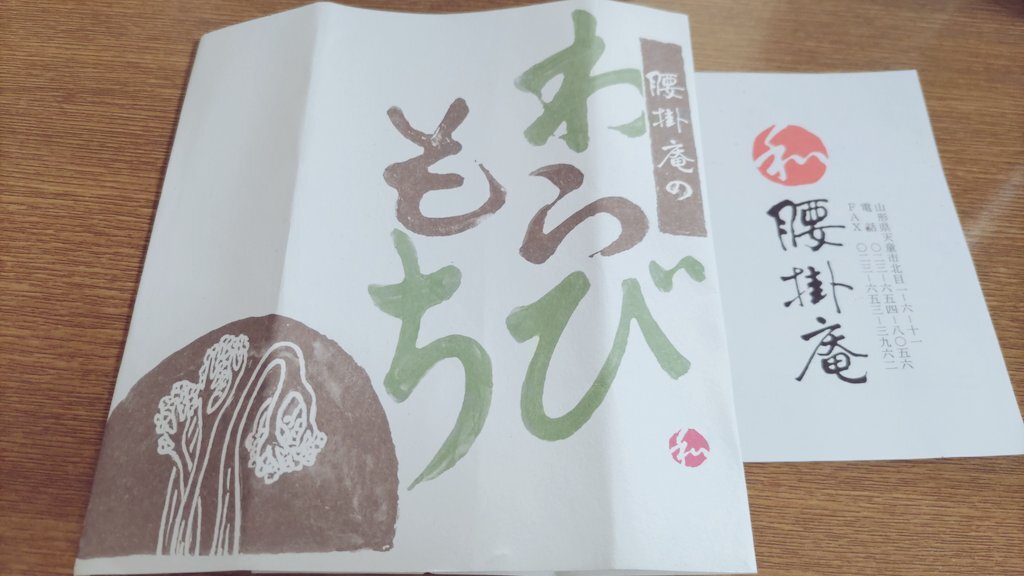 腰掛庵の
わらび
もち
和
和
山形県天童市北目一-六-十一
電話 〇二三-六五四-八〇五六
FAX 〇二三-六五三-三九六二
腰掛庵